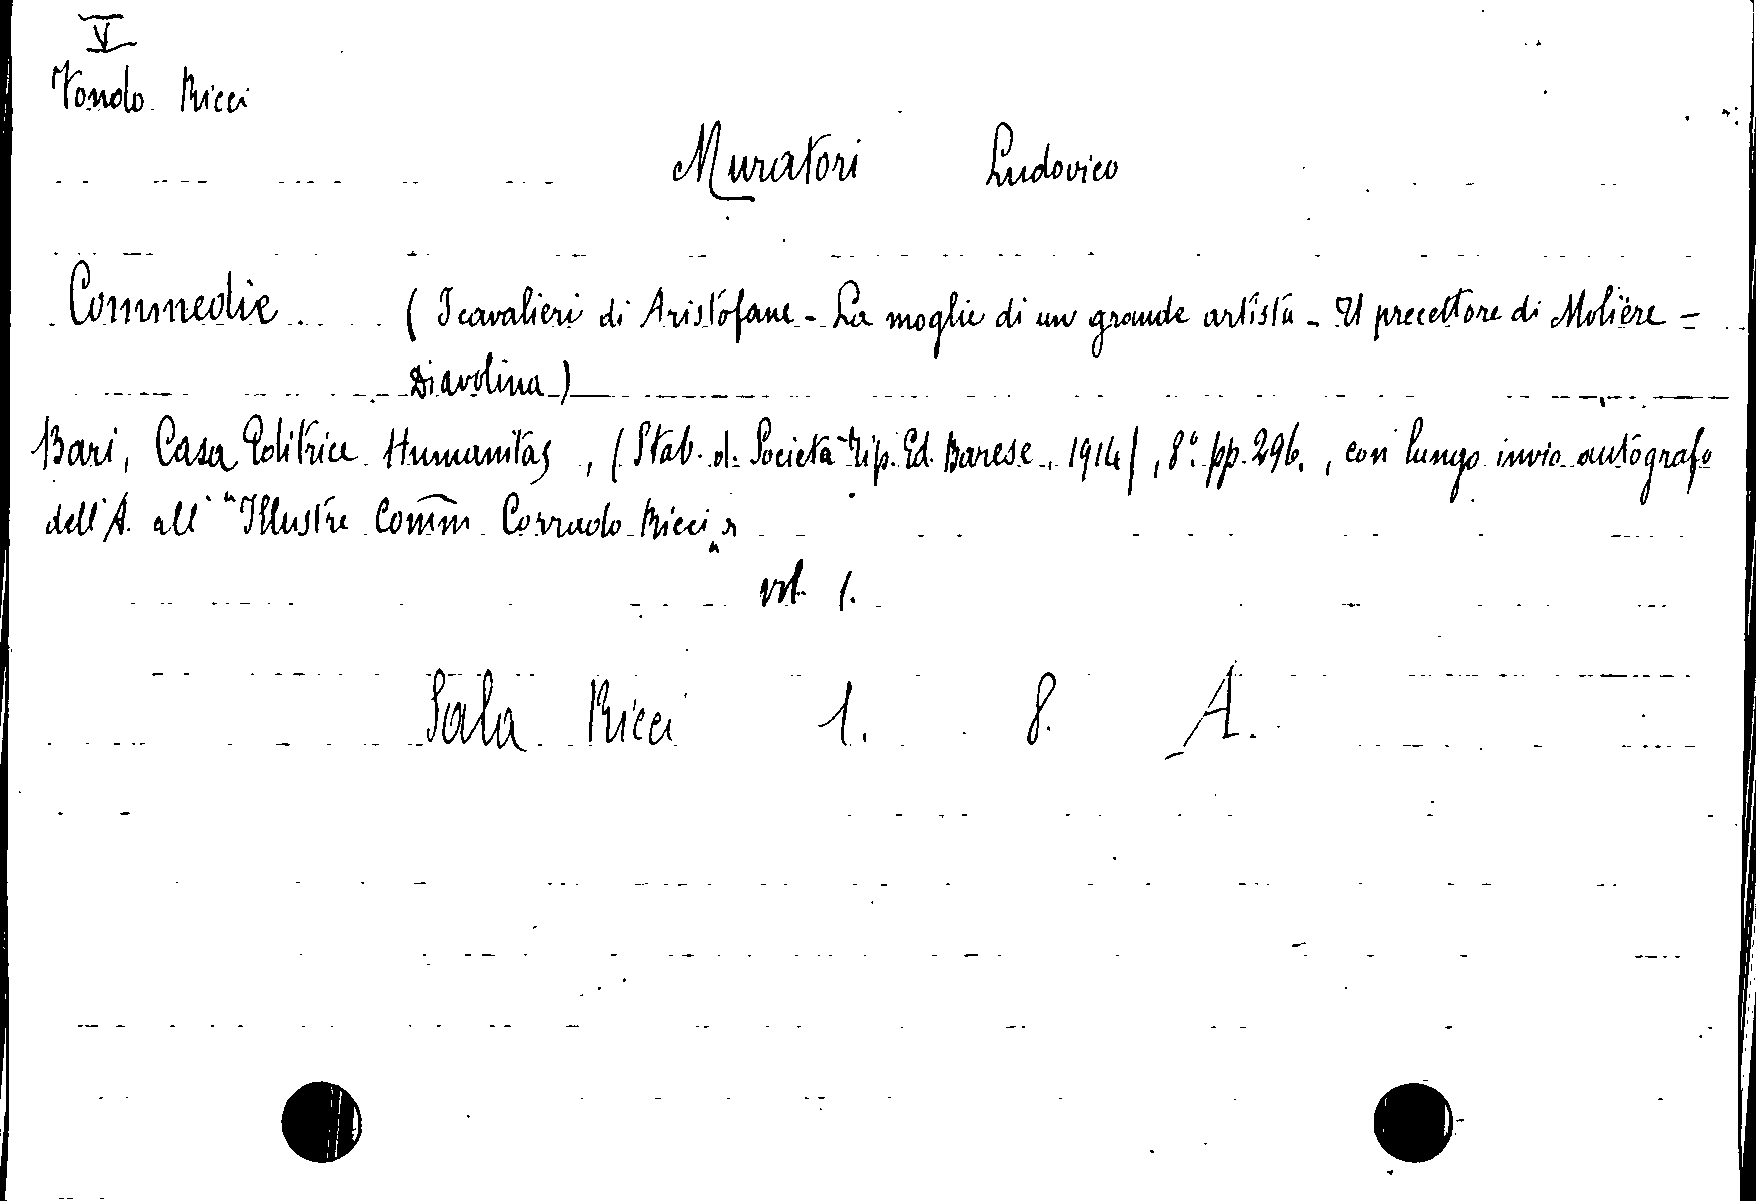 V
Fondo Ricci
Muratori Ludovico
Commedie (I cavalieri di Aristofane - La moglie di un grande artista - Il precettore di Molière -
Diavolina)
Bari, Casa Editrice Humanitas, (Stab. d. Società Tip. Ed. Barese, 1914), 8° pp. 296., con lungo invio autografo
dell'A. all' "Illustre Comm Corrado Ricci"
vol. 1.
Sala Ricci 1. 8. A.